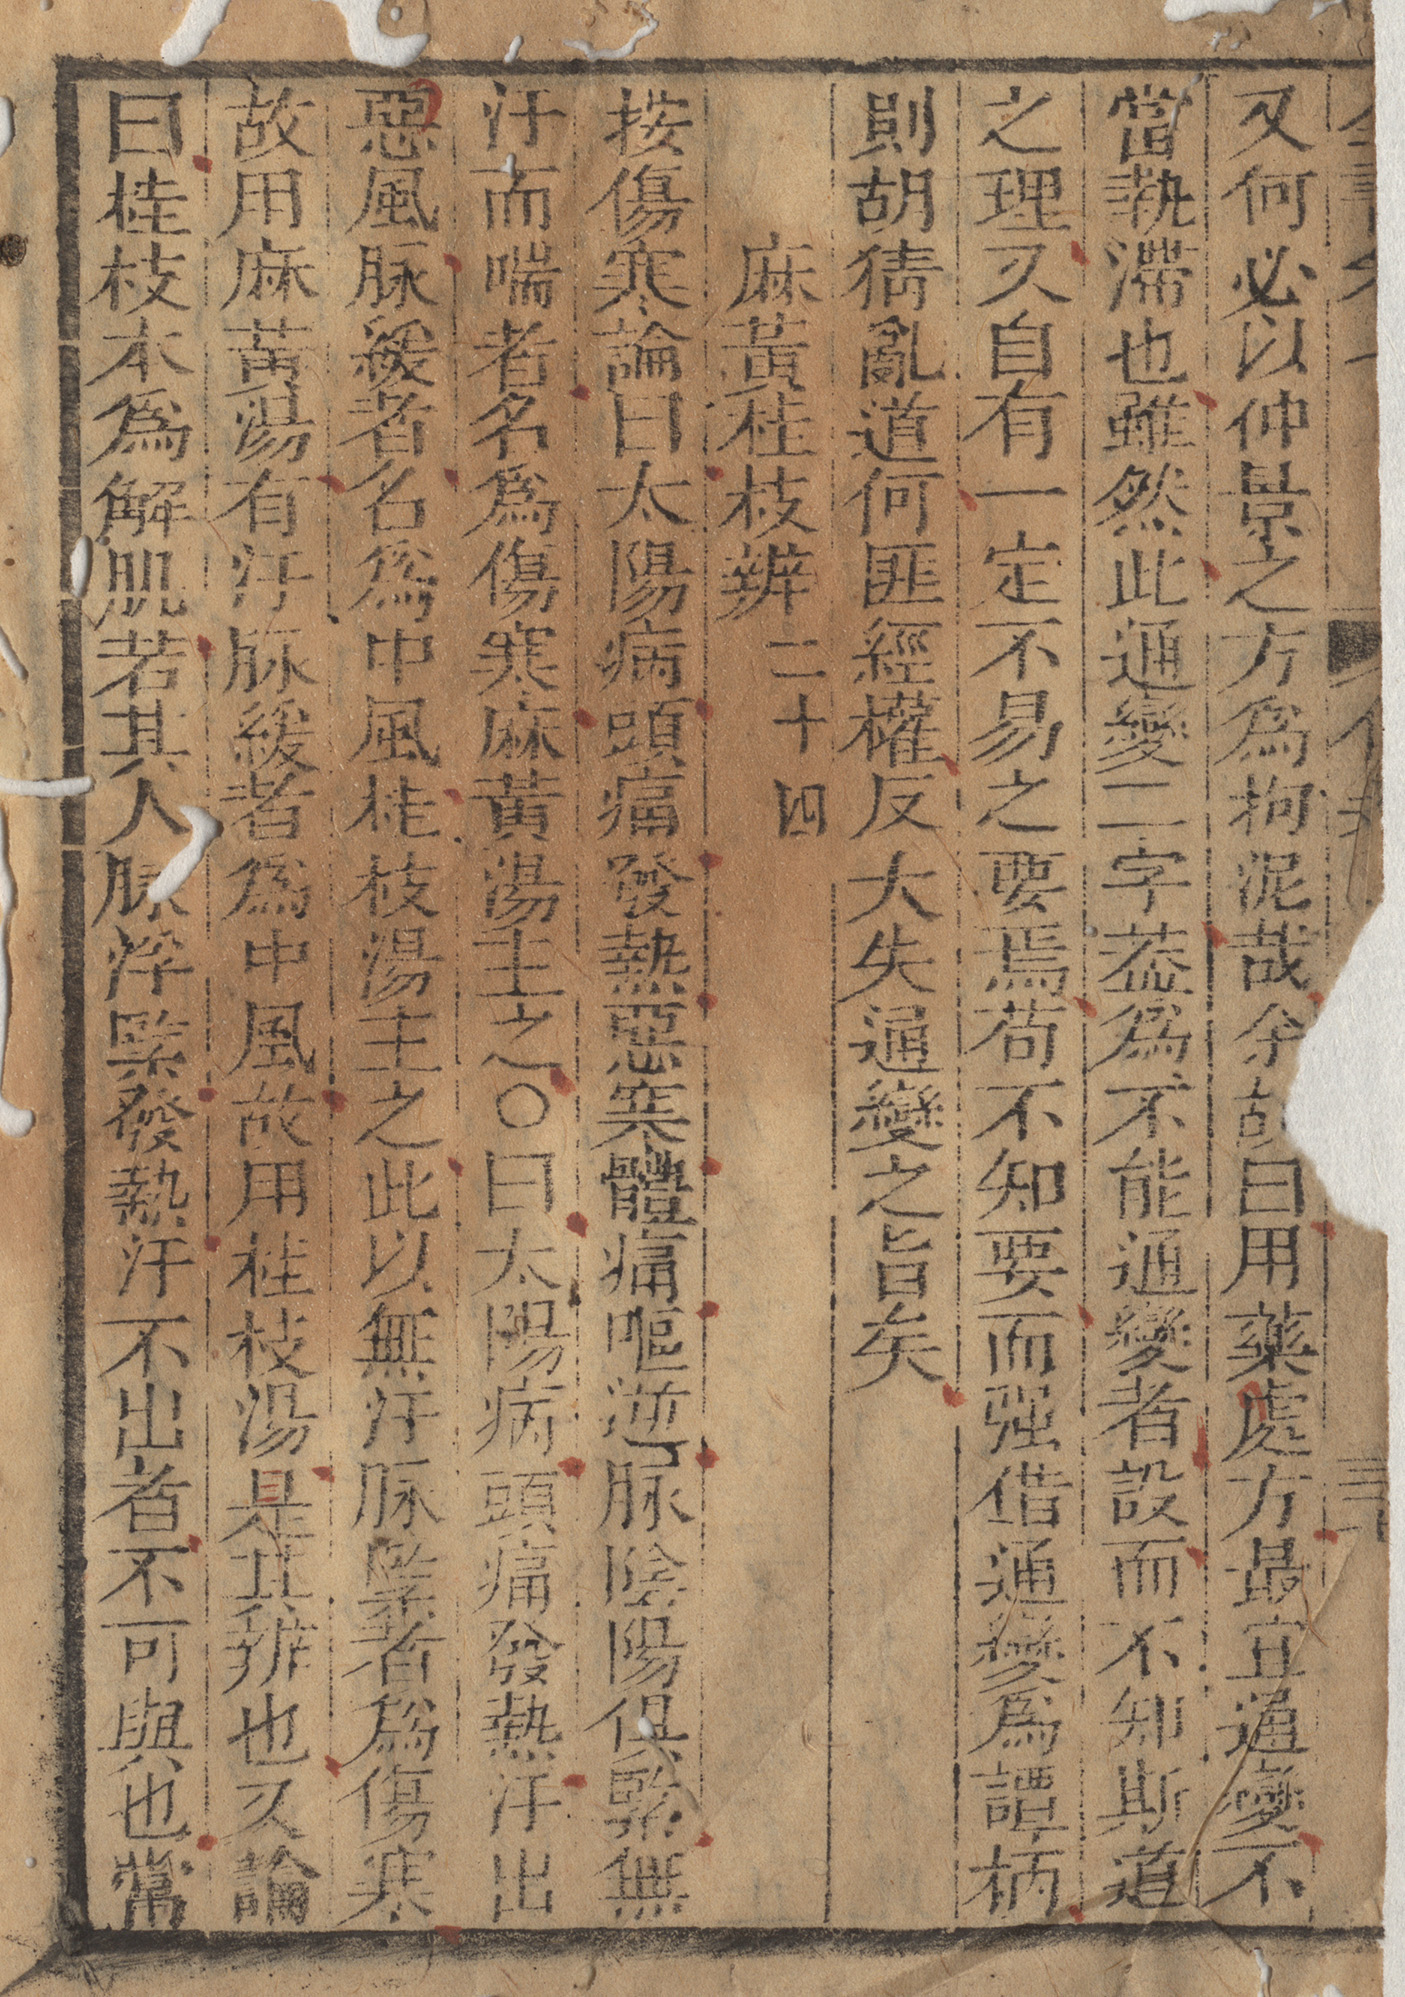 又何必以仲景之方為拘泥哉余故曰用藥處方最宜通變不
當執滯也雖然此通變二字葢為不能通變者設而不知斯道
之理又自有一定不易之要焉苟不知要而强借通變為譚柄
則胡猜亂道何匪經權反大失通變之旨矣
麻黃桂枝辨 二十四
按傷寒論曰太陽病頭痛發熱惡寒體痛嘔逆脉陰陽俱緊無
汗而喘者名為傷寒麻黃湯主之○曰太陽病頭痛發熱汗出
惡風脉緩者名為中風桂枝湯主之此以無汗脉緊者為傷寒
故用麻黃湯有汗脉緩者為中風故用桂枝湯是其辨也又論
曰桂枝本為解肌若其人脉浮緊發熱汗不出者不可與也當